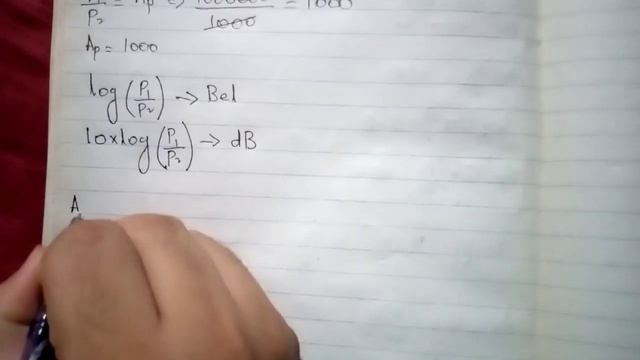 P₁/P₂ = Ap ⇒ /1000 = 1000
Ap = 1000
log(P₁/P₂) → Bel
10×log(P₁/P₂) → dB
A